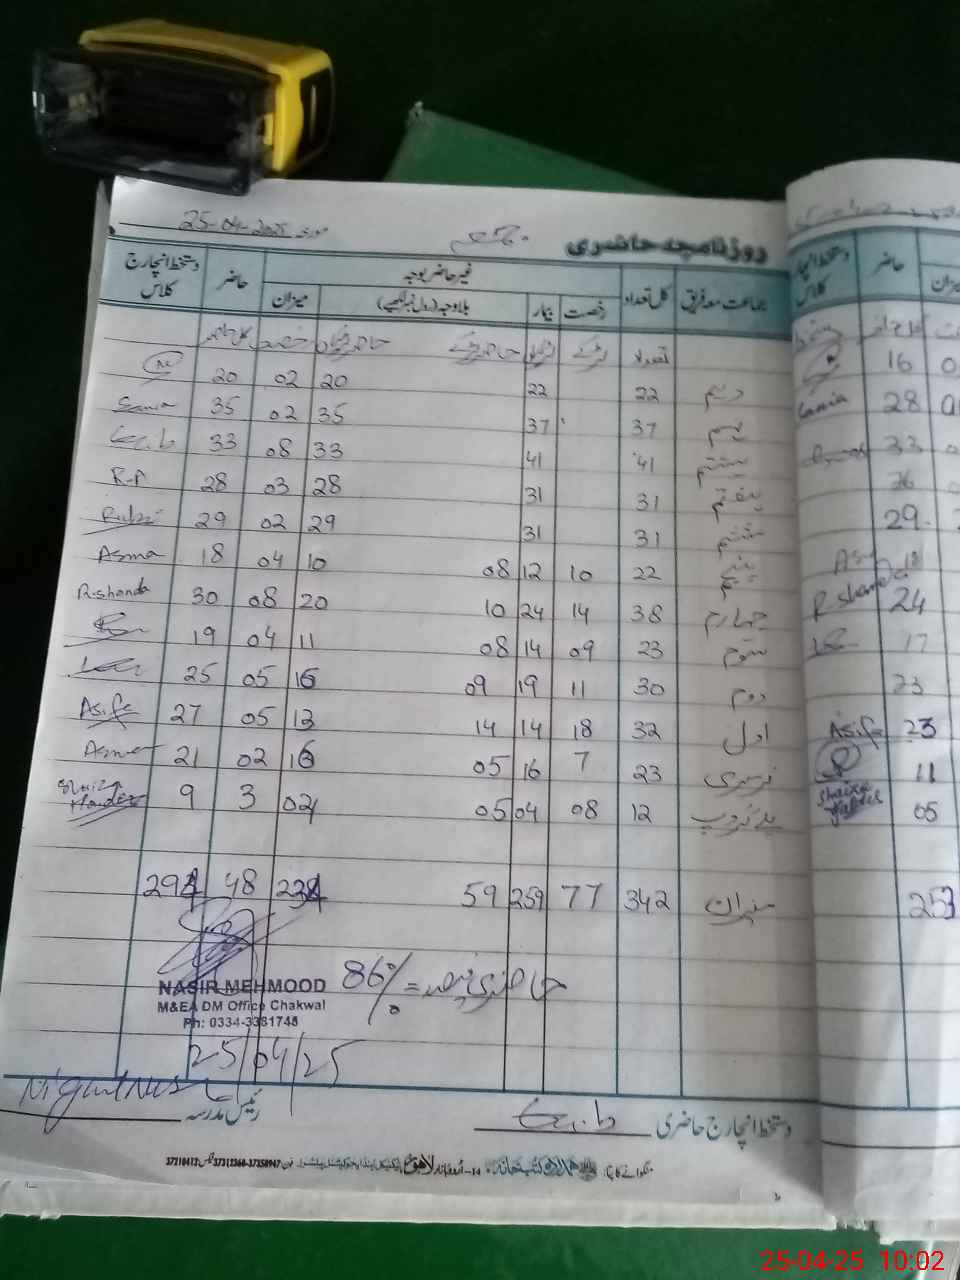 روزنامچہ حاضری جمعہ مورخہ 25-04-2025
جماعت معہ فریق کل تعداد غیر حاضر بوجہ حاضر دستخط انچارج کلاس
رخصت بیمار بلاوجہ (رول نمبر لکھیے) میزان
تعداد
دہم 22 22 20 02 20
نہم 37 37 35 02 35 Sawa
ہشتم 41 41 33 08 33
ہفتم 31 31 28 03 28 R-A
ششم 31 31 29 02 29
پنجم 22 10 12 08 10 04 18 Asma
چہارم 38 14 24 10 20 08 30 R-shanda
سوم 23 09 14 08 11 04 19
دوم 30 11 19 09 16 05 25
اول 32 18 14 14 13 05 27 Asifa
نرسری 23 7 16 05 16 02 21 Asma
پلے گروپ 12 08 04 05 04 3 9 Shaiza Haider
میزان 342 77 259 59 234 48 294
حاضری فیصد = 86%
NASIR MEHMOOD
M&EA DM Office Chakwal
Ph: 0334-3381748
25/04/25
دستخط انچارج حاضری رئیس مدرسہ
دستخط انچارج کلاس حاضر میزان
16
28
33
26
29
18
R-shanda 24
17
23
Asifa 23
11
Shaiza Haider 05
253
25-04-25 10:02